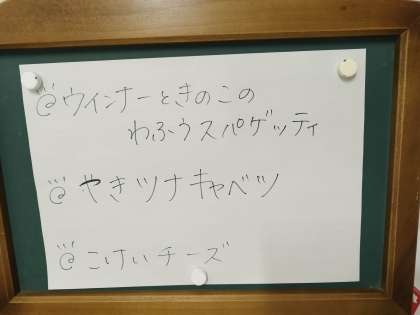 @ウインナーときのこの
わふうスパゲッティ
@やきツナキャベツ
@こけいチーズ